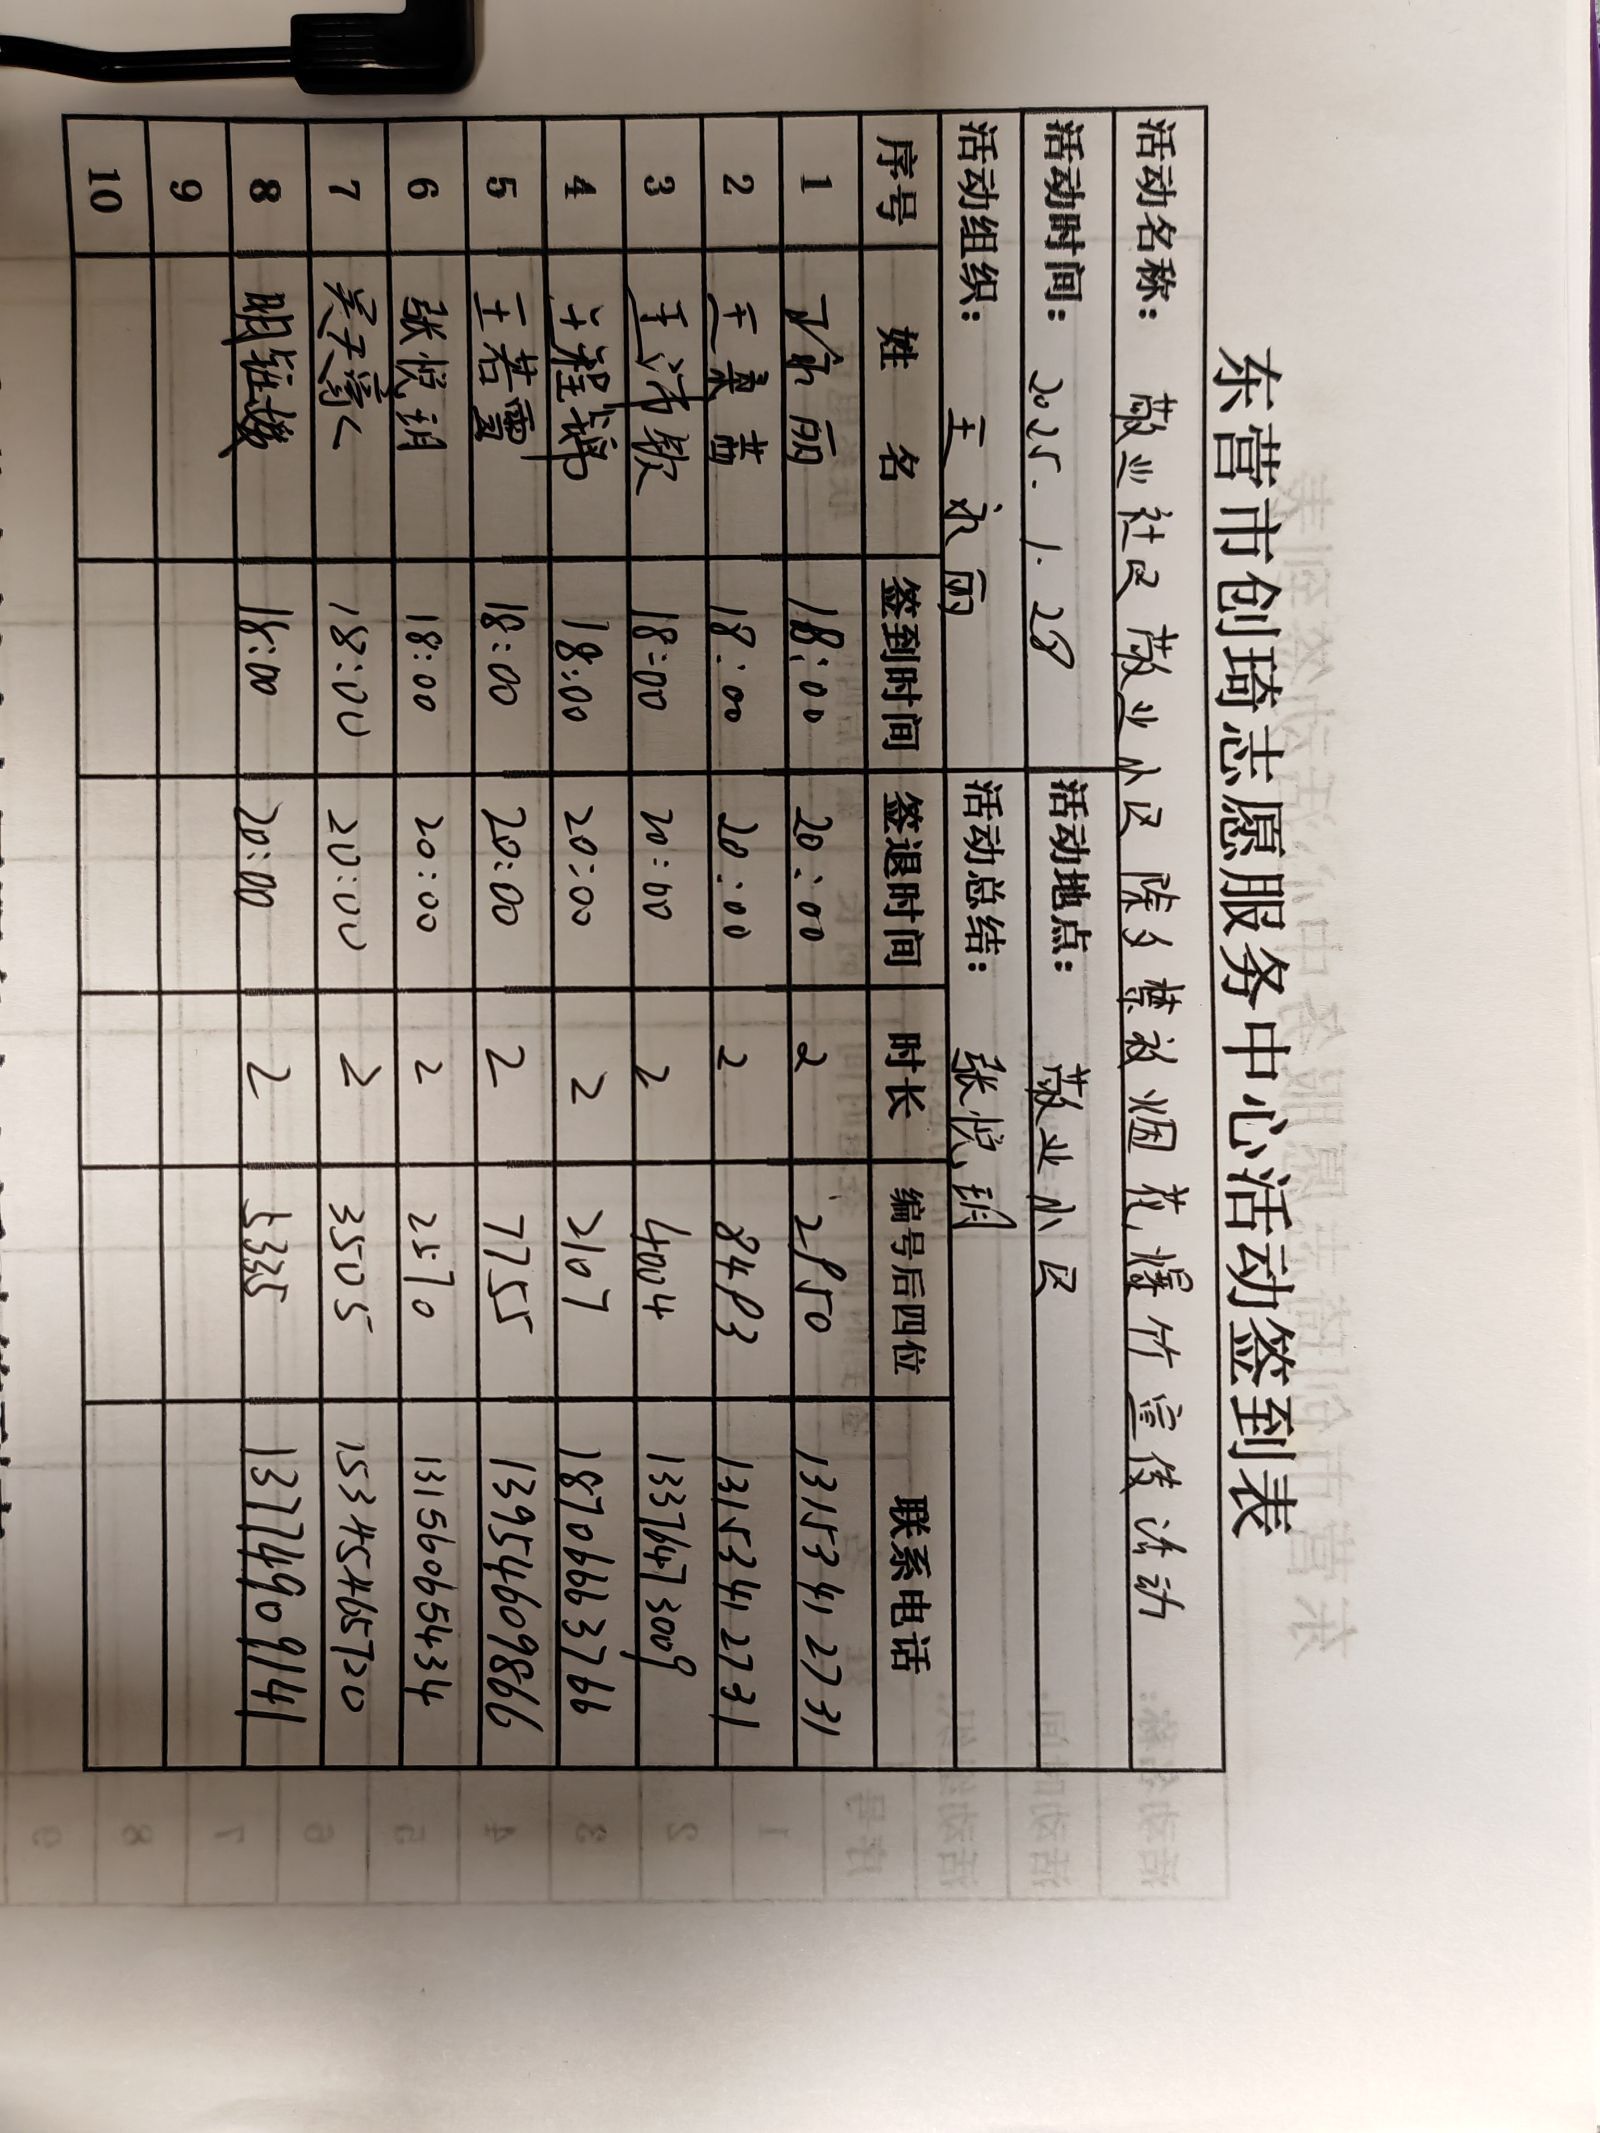 东营市创琦志愿服务中心活动签到表
活动名称： 社区 小区除夕禁放烟花爆竹宣传活动
活动时间： 2025.1.28 活动地点： 小区
活动组织： 王永丽 活动总结： 张悦玥
序号 姓名 签到时间 签退时间 时长 编号后四位 联系电话
1 王永丽 18:00 20:00 2 13153412731
2 18:00 20:00 2 13153412731
3 18:00 20:00 2 4004 13376473009
4 18:00 20:00 2 2107 18706663766
5 王若雪 18:00 20:00 2 7755 13954609866
6 张悦玥 18:00 20:00 2 2570 13156065434
7 18:00 20:00 2 3505 15345465720
8 18:00 20:00 2 5335 13774909141
9
10